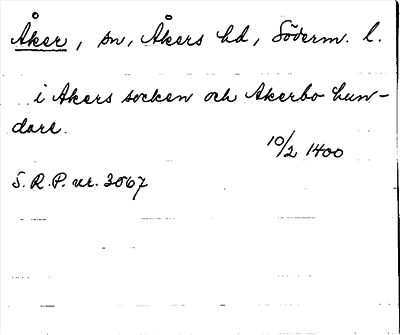 Åker, sn, Åkers hd, Söderm. l.
i Akers socken och Akerbo hun-
dare.
10/2 1400
S. R. P. nr. 3067